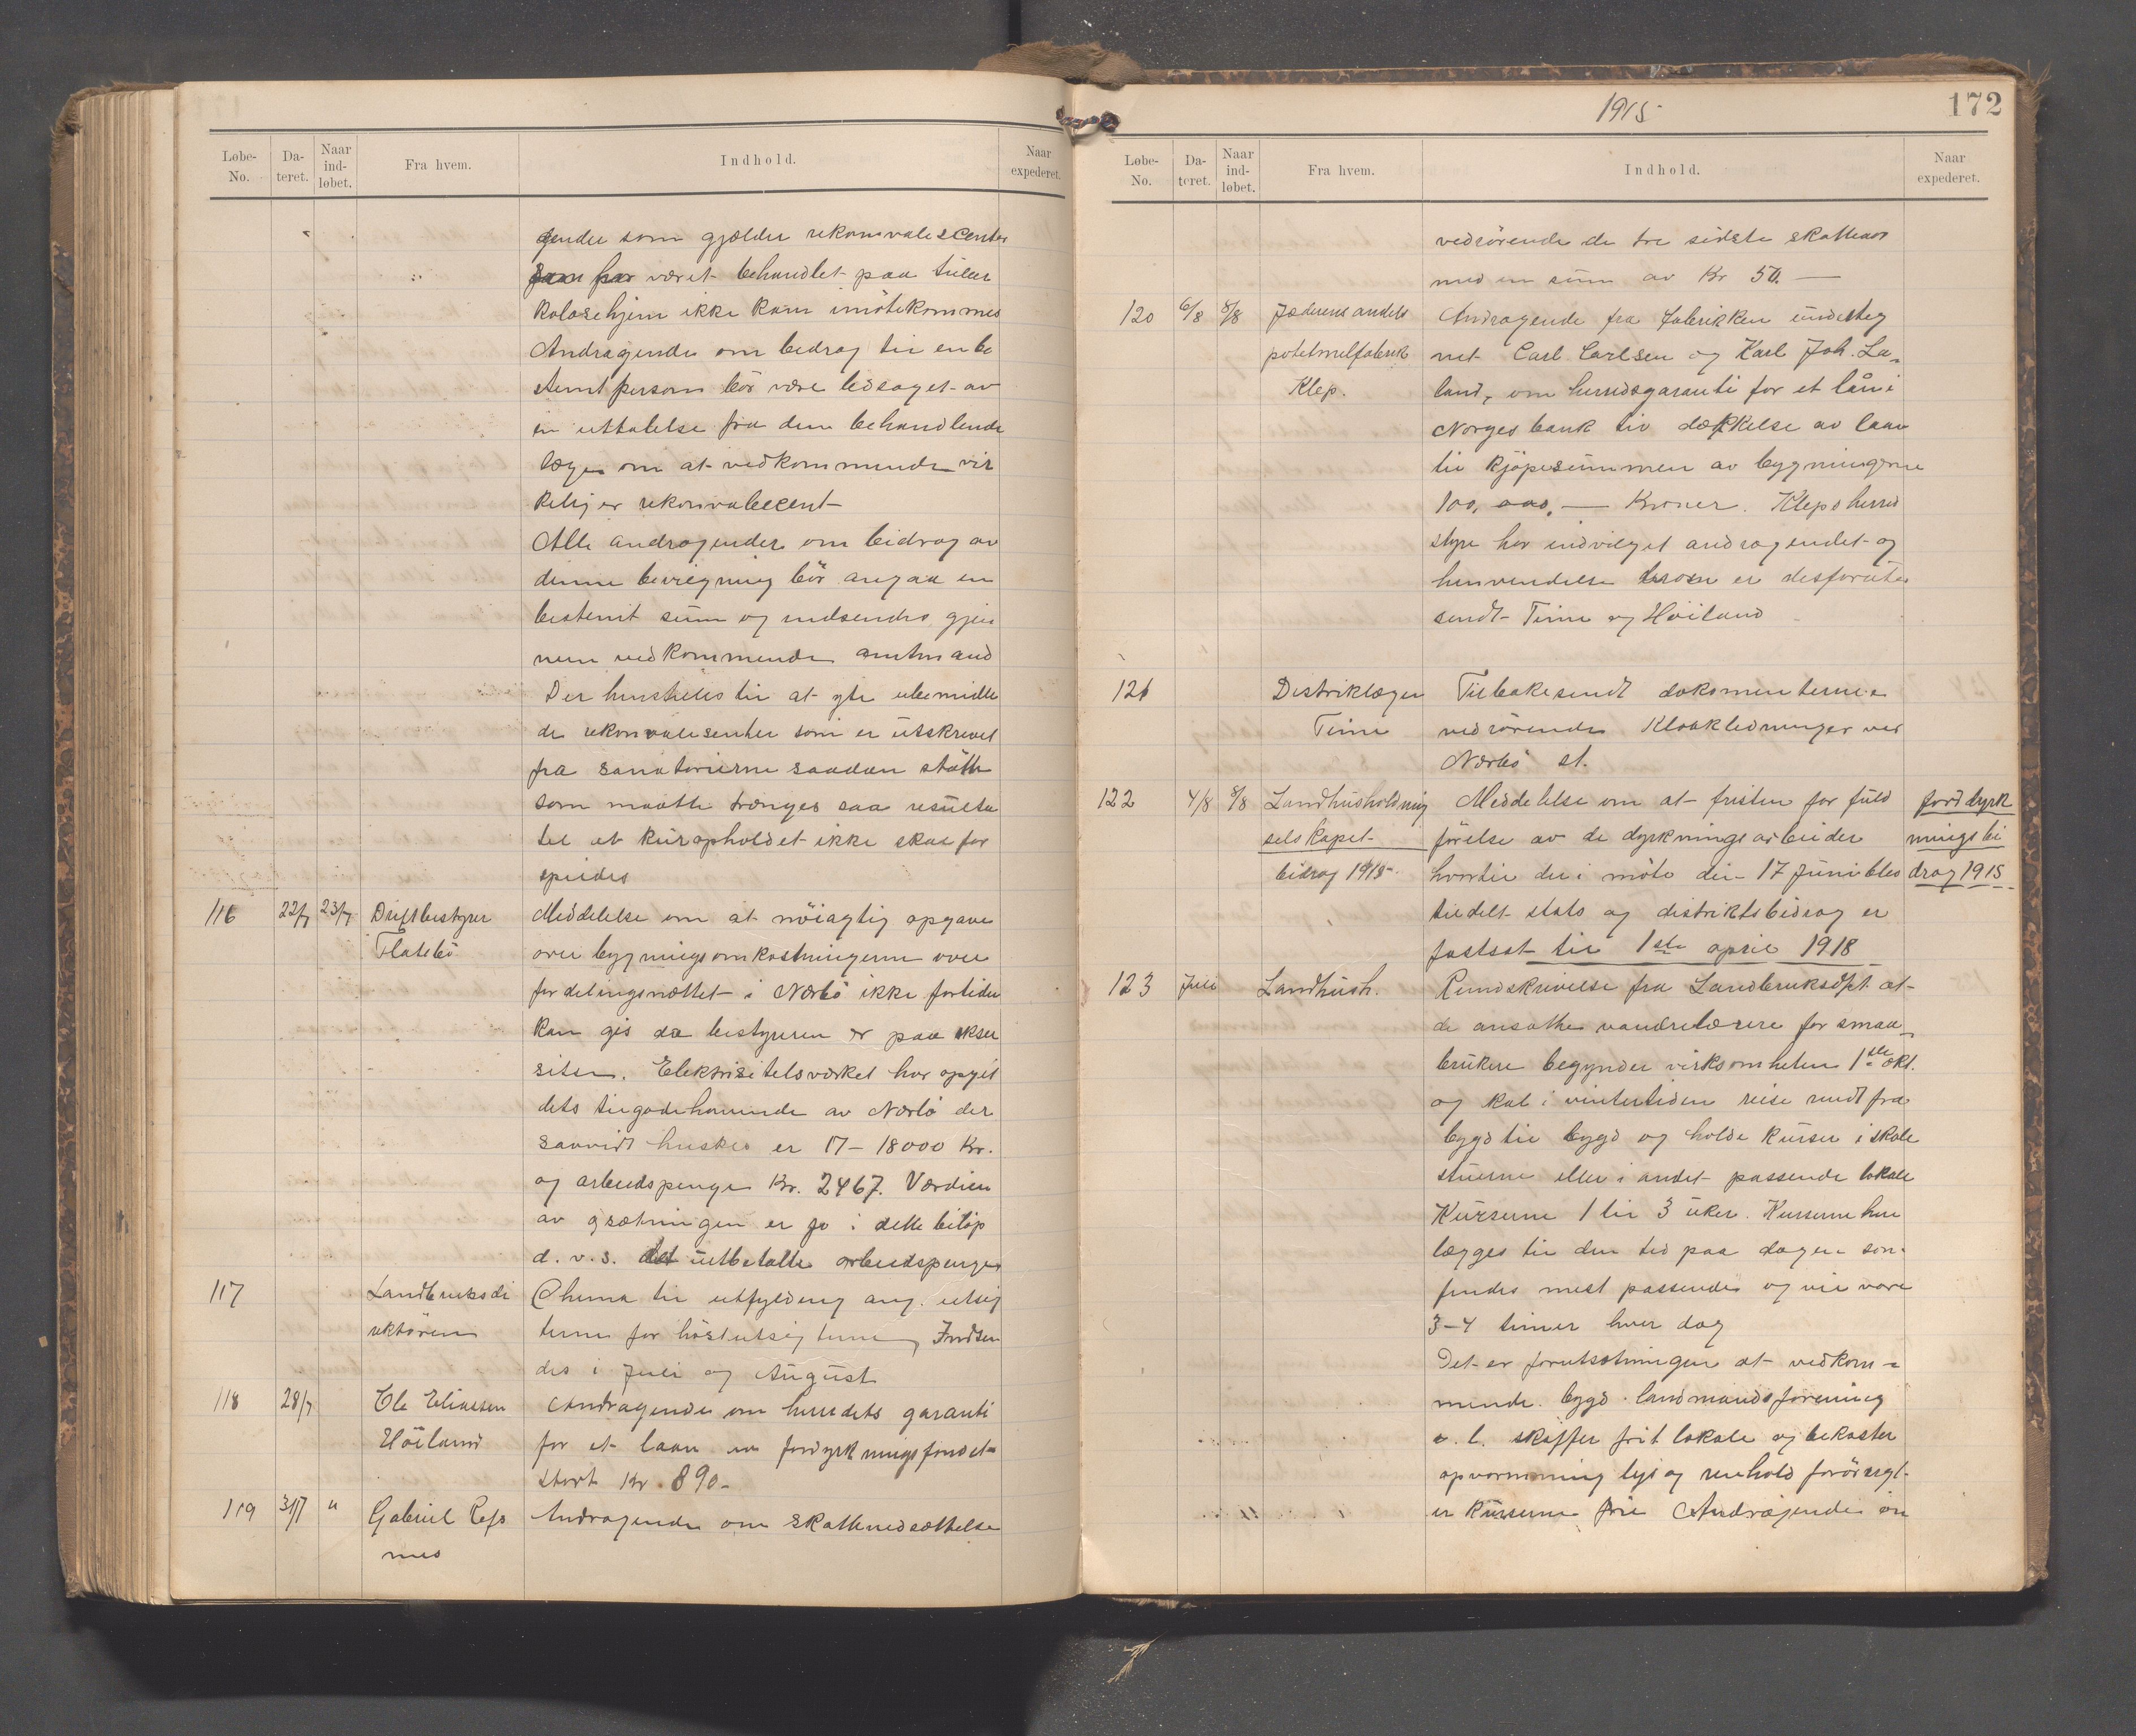 Løbe-No. Da-teret. Naar ind-løbet. Fra hvem. Indhold. Naar expederet.
gender som gjælder rekonvalescenter
som har været behandlet paa tuber
kolosehjem ikke kan imøtekommes
Andragende om bedrag til en be
stemt person bör være ledsaget av
en uttalelse fra den behandlende
læge om at vedkommende vir
kelig er rekonvalecent
Alle andragender om bidrag av
denne bevilgning bör angaa en
bestemt sum og indsendes gjen
nem vedkommende amtmand
Der henstilles til at yte ubemidle
de rekonvalesenter som er utskrevet
fra sanatorierne saadan stötte
som maatte trænges saa resulta
tet at kuropholdet ikke skal for
spildes
116 22/7 23/7 Driftbestyrer Meddelelse om at nöiagtig opgave
Flatebö over bygningsomkostningerne over
fordelingsnættet i Nærbö ikke fortiden
kan gis da bestyreren er paa ekser
sitsen. Elektrisitetsværket har opgit
dets tilgodehavende av Nærbö der
saavidt huskes er 17-18000 Kr.
og arbeidspenge Kr. 2467. Værdien
av gsætningen er jo i dette belöp
d. v. s. det utbetalte arbeidspenger
117 Landbruksdi Skema til utfylding ang. utsig
rektören terne for höstutsigterne, Indsen
des i Juli og August
118 28/7 Ole Eliassen Andragende om herredets garanti
Höiland for et laan av jordyrkningsfondet
stort Kr. 890-
119 31/7 " Gabriel Refs Andragende om skattenedsættelse
nes
1915 172
Løbe-No. Da-teret. Naar ind-løbet. Fra hvem. Indhold. Naar expederet.
vedrörende de tre sidste skatteaar
med en sum av Kr 50.—
120 6/8 8/8 Jæderens andels Andragende fra fabrikken underteg
potetmelfabrik net Carl Carlsen og Karl Joh. La-
Klep. land, om herredsgaranti for et lån i
Norges bank til dækkelse av laan
til kjöpesummen av bygningerne
100,000,— Kroner. Kleps herred
styre har indvilget andragendet og
henvendelse herom er desforuten
sendt Time og Höiland
121 Distriktlægen Tilbakesendt dokomenterne
Time vedrörende Kloakledninger ved
Nærbö st.
122 4/8 8/8 Landhusholdning Meddelelse om at fristen for fuld jorddyrk
selskapet förelse av de dyrkningsarbeider nings bi
bidrag 1915 hvortil der i möte den 17 Juni blev drag 1915
tildelt stats og distriktsbidrag er
fastsat til 1ste april 1918
123 Juli Landhush. Rundskrivelse fra Landbruksdpt. at
de ansatte vandrelærere for smaa-
brukere begynder virksomheten 1ste okt.
og skal i vintertiden reise rundt fra
bygd til bygd og holde kurser i skole
stuerne eller i andet passende lokale
Kurserne 1 til 3 uker. Kurserne hen
lægges til den tid paa dagen som
findes mest passende og vil vare
3-4 timer hver dag
Det er forutsætningen at vedkom-
mende bygd landmandsforening
e. l. skaffer frit lokale og bekoster
opvarmning lys og renhold forövrigt
er kurserne frie Andragende om